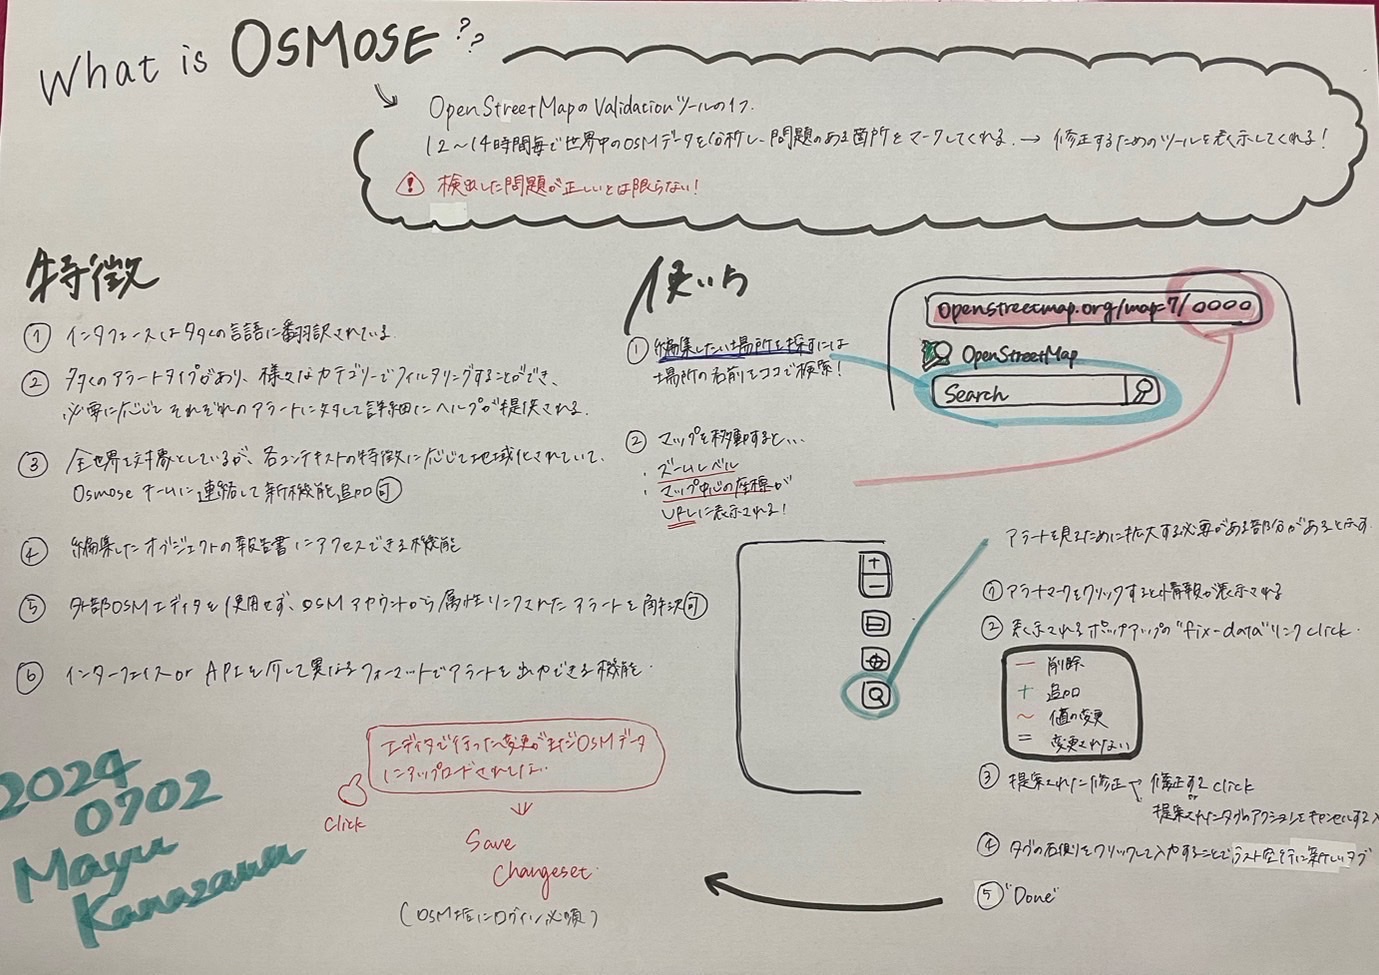 What is OSMOSE ??
OpenStreetMapのValidationツールの1つ.
12〜14時間毎で世界中のOSMデータを分析し、問題のある箇所をマークしてくれる. → 修正するためのツールを表示してくれる!
! 検出した問題が正しいとは限らない!
特徴
① インタフェースは多くの言語に翻訳されている.
② 多くのアラートタイプがあり、様々なカテゴリーでフィルタリングすることができ、
必要に応じて それぞれのアラートに対して詳細にヘルプが提供される.
③ 全世界を対象としているが、各コンテキストの特徴に応じて地域化されていて、
Osmose チームに連絡して新機能追加可
④ 編集したオブジェクトの報告書にアクセスできる機能
⑤ 外部OSMエディタを使用せず、OSMアカウントから属性リンクされたアラートを解決可
⑥ インターフェイス or APIを介して異なるフォーマットでアラートを出力できる機能.
使い方
① 編集したい場所を探すには
場所の名前をココで検索!
openstreetmap.org/map=7/○○○○
OpenStreetMap
Search
② マップを移動すると...
・ズームレベル
・マップ中心の座標が
URLに表示される!
+
-
アラートを見るために拡大する必要がある部分があると示す.
① アラートマークをクリックすると情報が表示される
② 表示されるポップアップの"fix-data"リンクclick.
— 削除
+ 追加
〜 値の変更
= 変更されない
③ 提案された修正 修正するclick
or
提案されたタグのアクションをキャンセルする
④ タグの右側をクリックして入力することでラスト空行に新しいタグ
⑤ "Done"
エディタで行った変更がまだOSMデータ
にアップロードされてない.
click
Save
Changeset.
(OSM上にログイン必須)
2024
0702
Mayu
Kanazawa